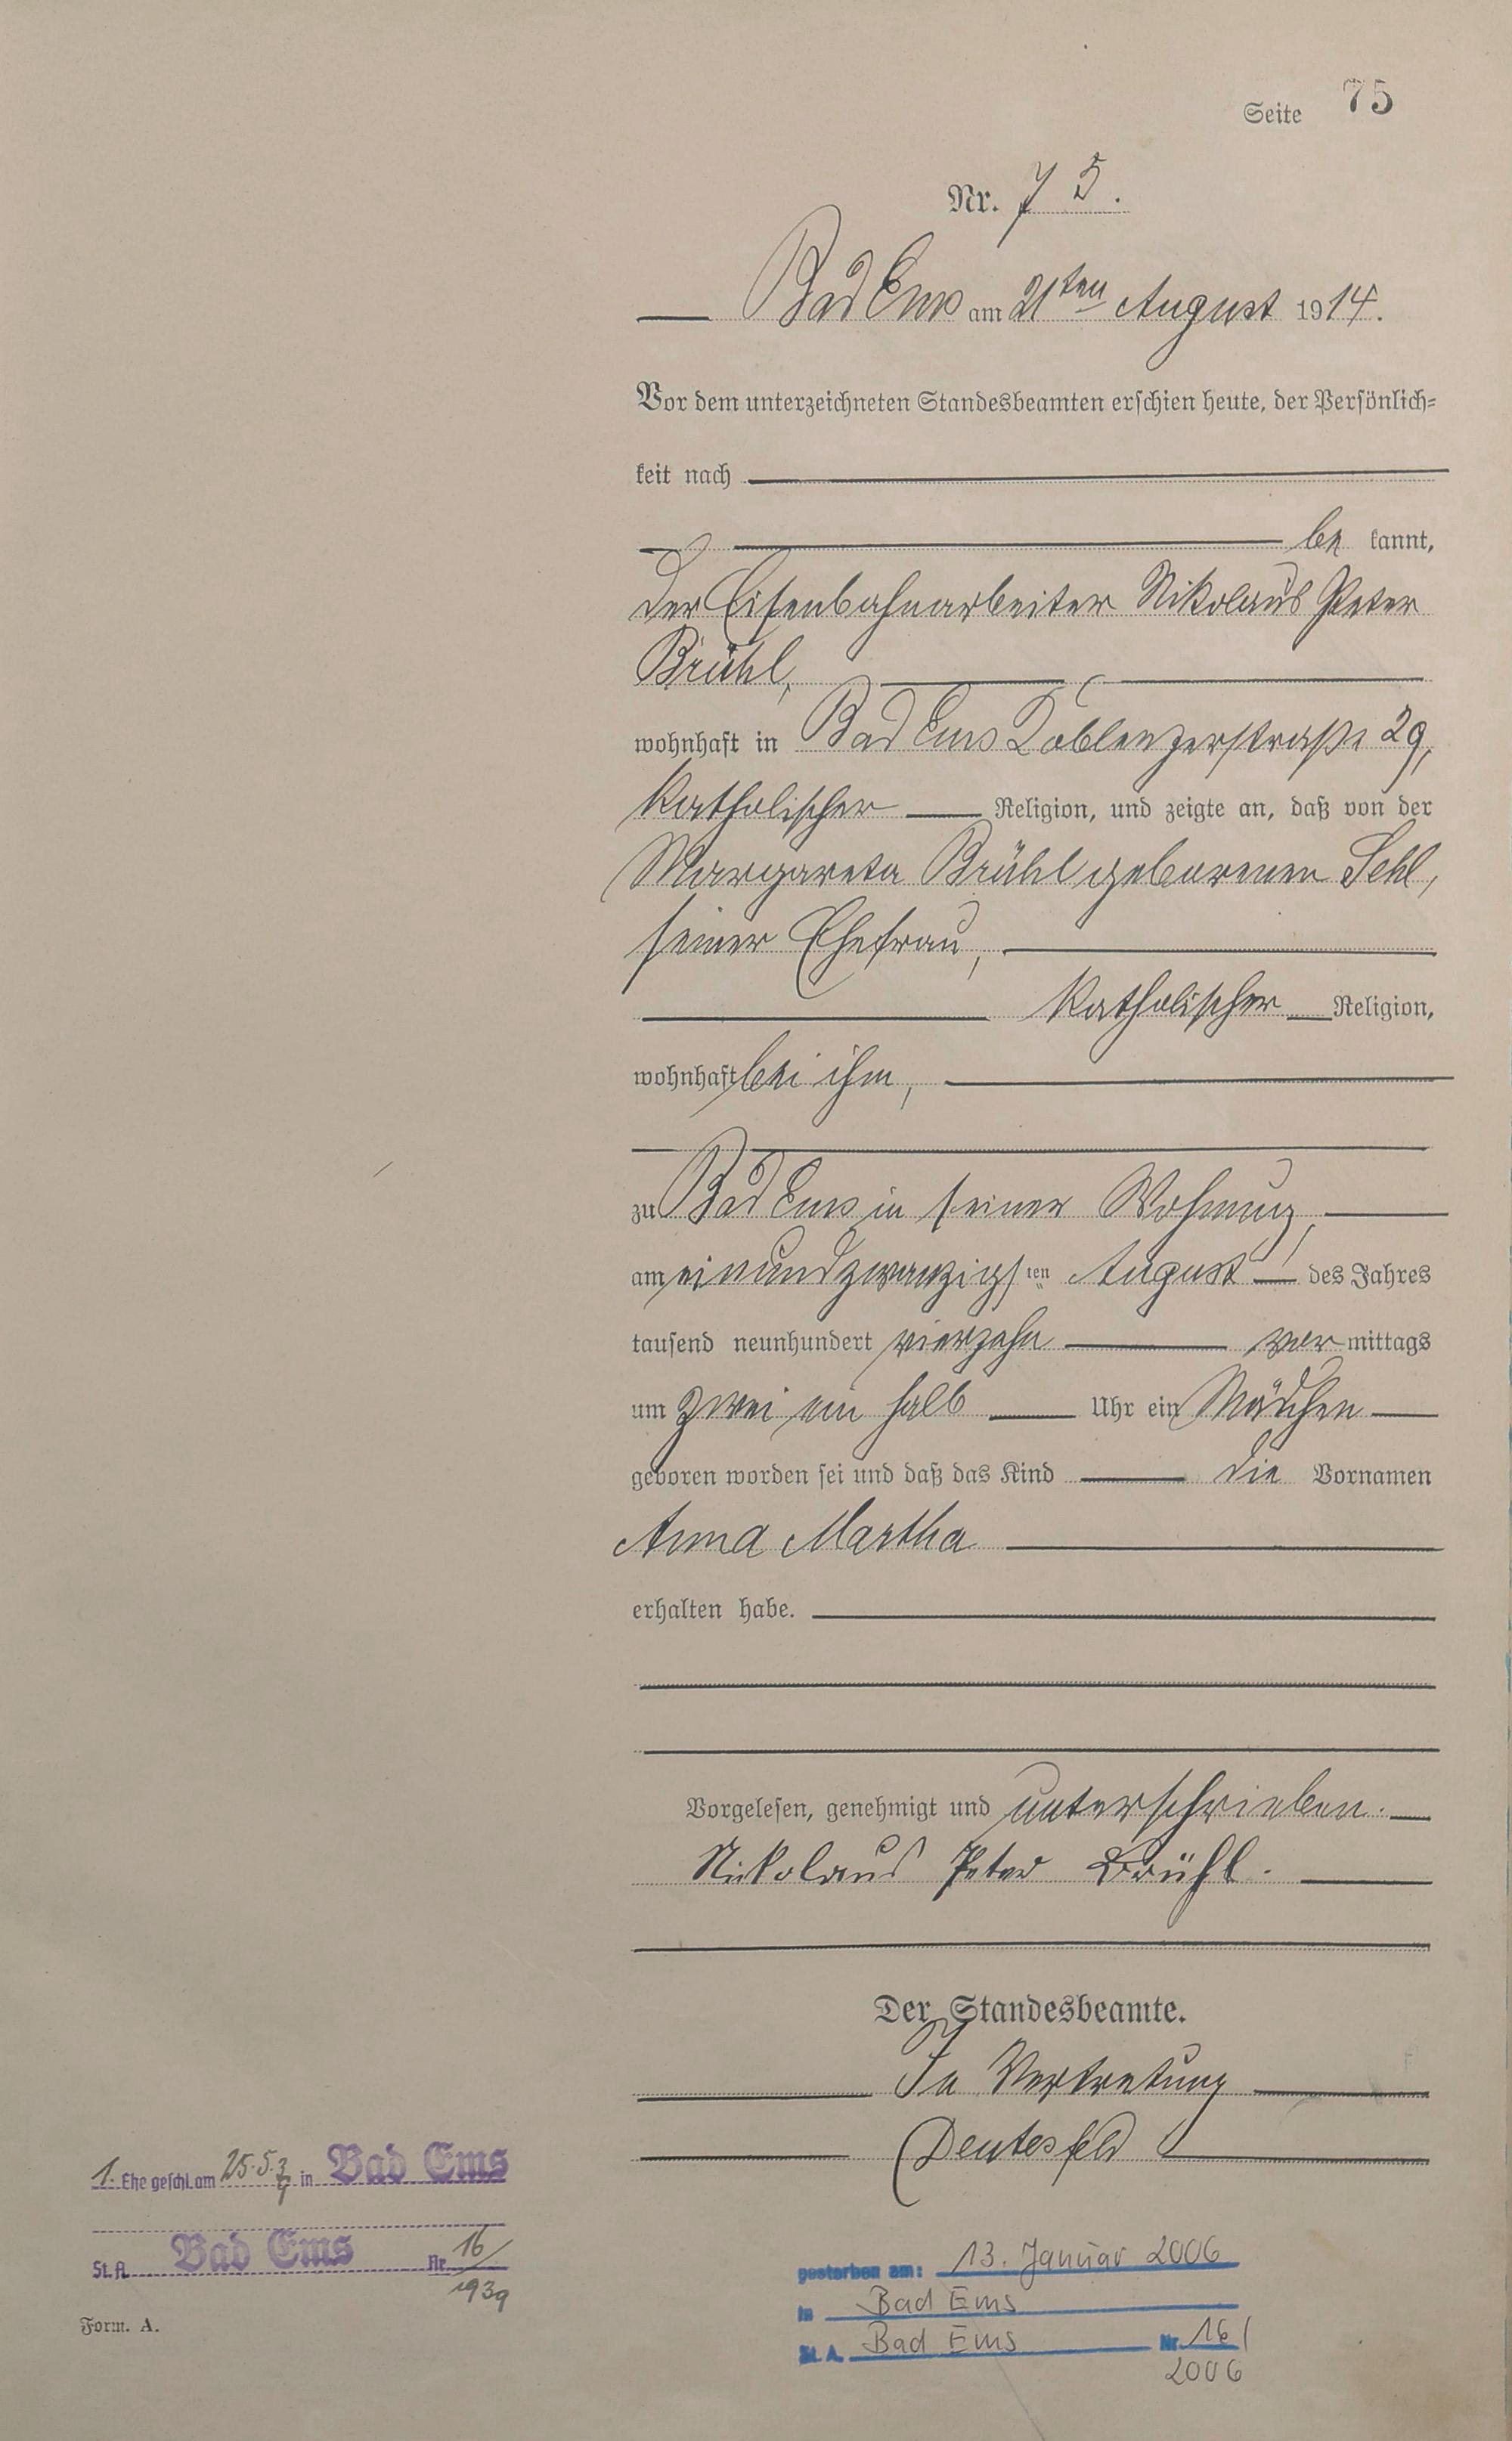 Seite 75
Nr. 75.
Bad Ems am 21ten August 1914.
Vor dem unterzeichneten Standesbeamten erschien heute, der Persönlich-
keit nach
be kannt,
der Eisenbahnarbeiter Nikolaus Peter
Brühl,
wohnhaft in Bad Ems Coblenzerstraße 29,
katholischer Religion, und zeigte an, daß von der
Margareta Brühl geborenen Sehl,
seiner Ehefrau,
katholischer Religion,
wohnhaft bei ihm,
zu Bad Ems in seiner Wohnung,
am einundzwanzigsten August des Jahres
tausend neunhundert vierzehn vor mittags
um zwei ein halb Uhr ein Mädchen
geboren worden sei und daß das Kind die Vornamen
Anna Martha
erhalten habe.
Vorgelesen, genehmigt und unterschrieben.
Nikolaus Peter Brühl.
Der Standesbeamte.
In Vertretung
Deutesfeld
1. Ehe geschl. am 25.5. in Bad Ems
St. A. Bad Ems Nr. 16/
1939
Form. A.
gestorben am: 13. Januar 2006
in Bad Ems
St. A. Bad Ems Nr. 16/
2006